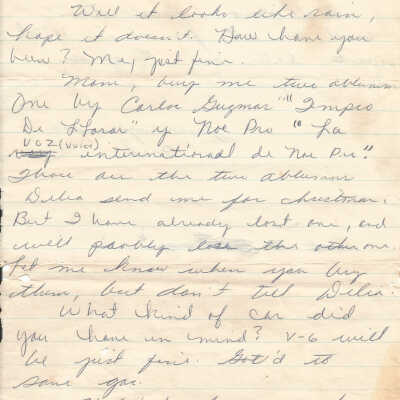 Well it looks like rain,
hope it doesn't. How have you
been? Me, just fine.
Mom, buy me two albumns
One by Carlos Guzman "Impio
De Llorar" y Noe Pro "La
VOZ (Voice)
international de Noe Pro".
Those are the two albumns
Delia send me for christmas.
But I have already lost one, and
will pobbly lose the other one.
Let me know when you buy
them, but don't tell Delia.
What kind of car did
you have in mind? V-6 will
be just fine. Got'd to
save gas.